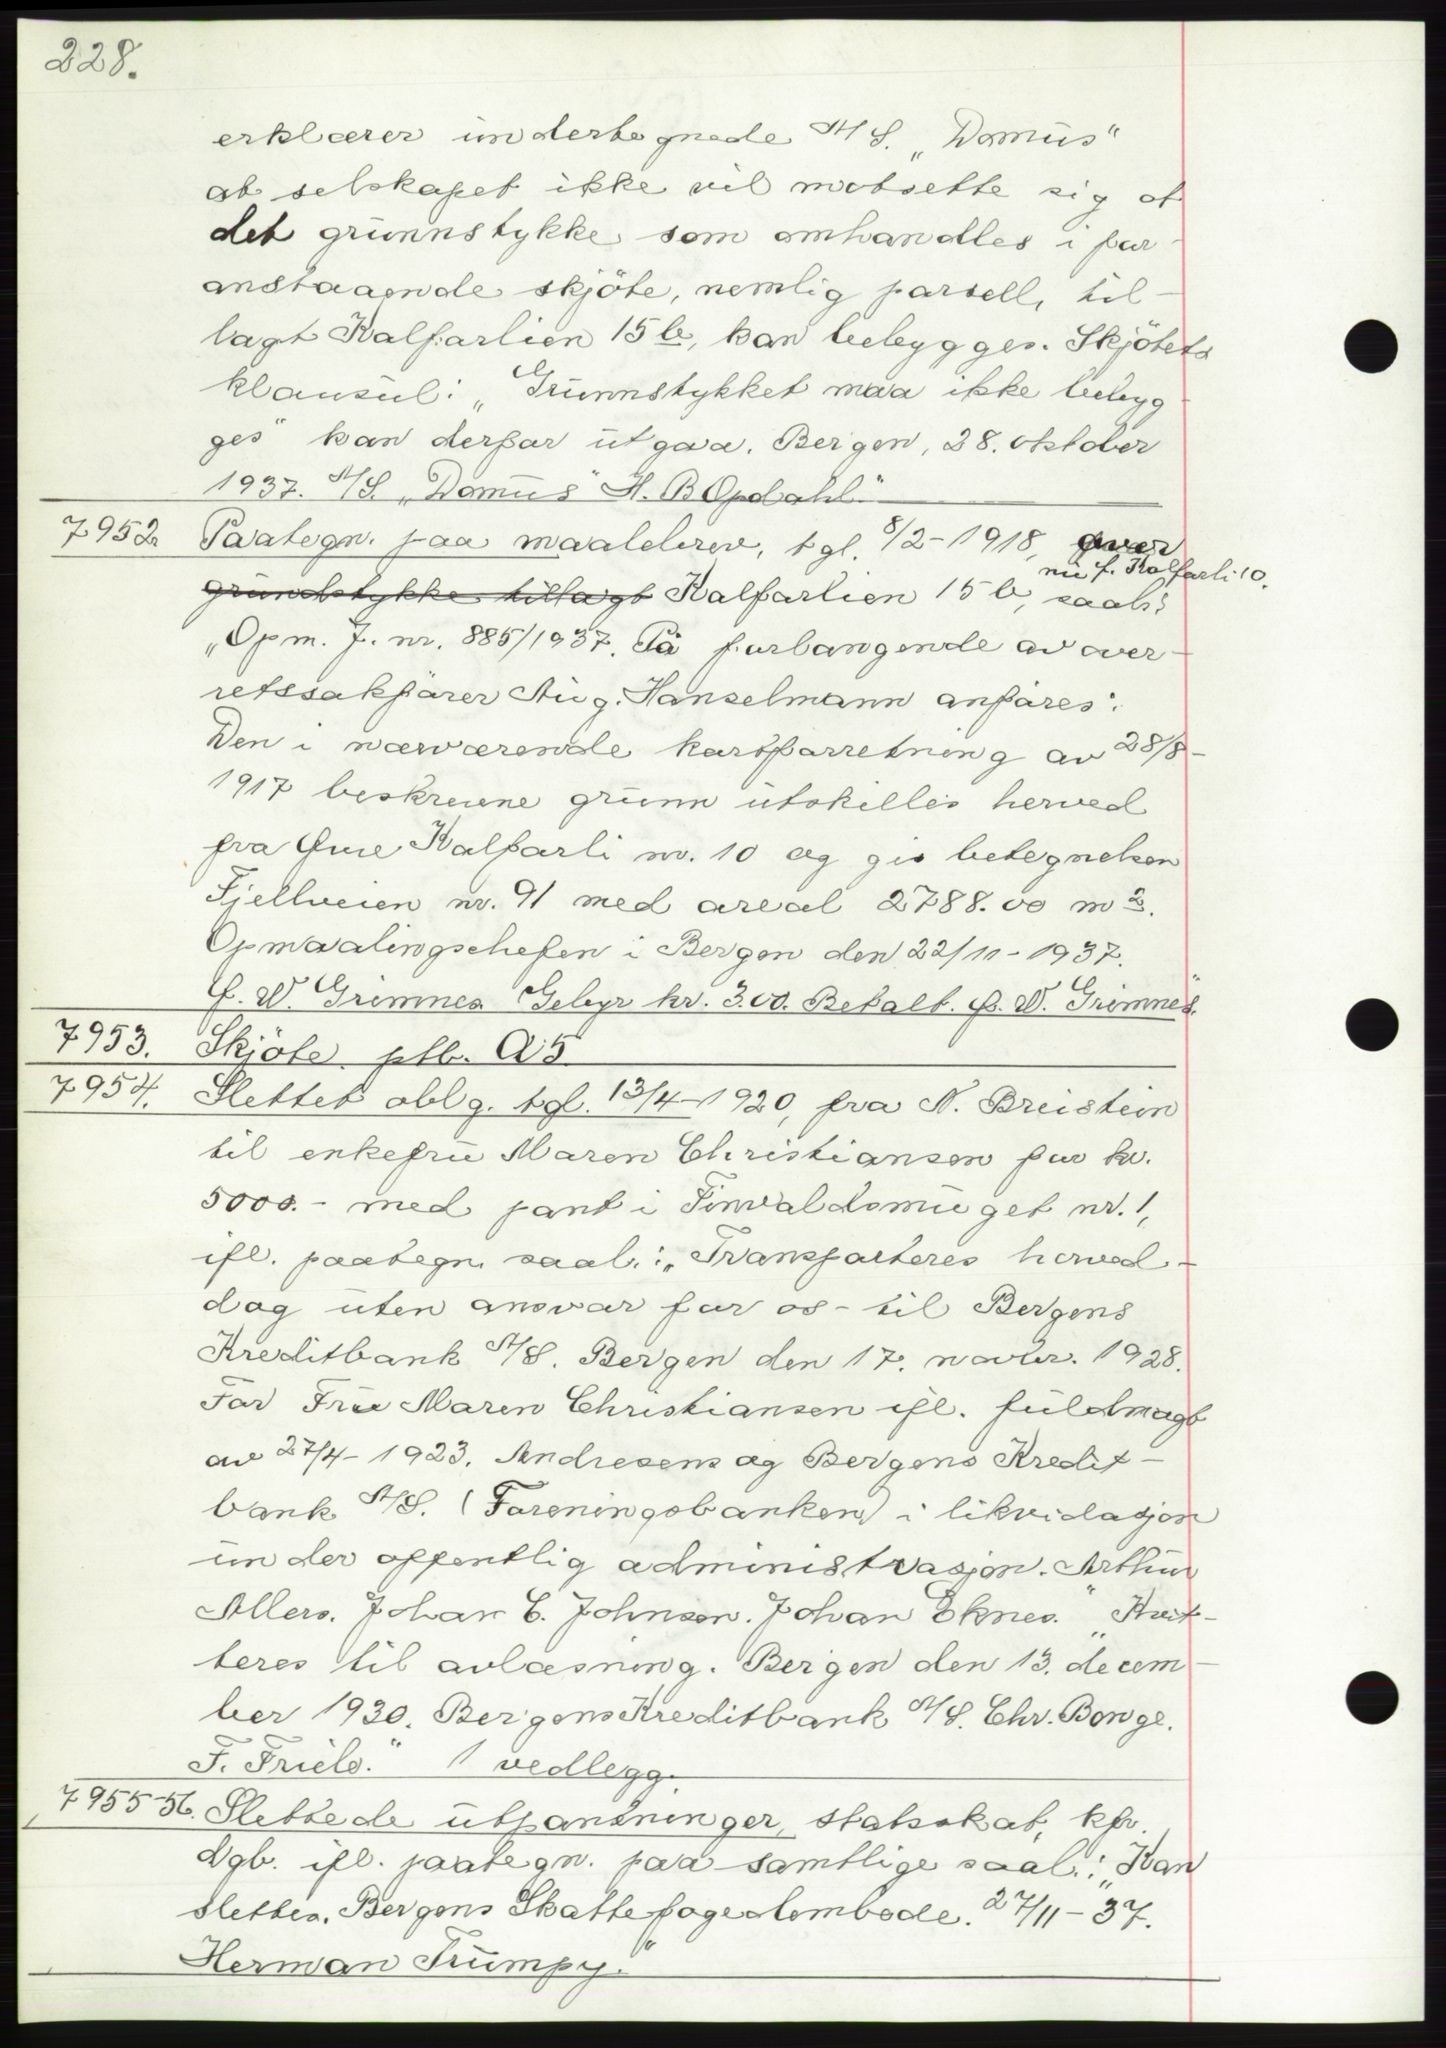 228.
erklærer undertegnede A/S. „Domus"
at selskapet ikke vil motsette sig at
det grunnstykke som omhandles i for-
anstaaende skjöte, nemlig parsell, til-
lagt Kalfarlien 15 b, kan bebygges. Skjötets
klausul: „Grunnstykket maa ikke bebyg
ges" kan derfor utgaa. Bergen, 28. oktober
1937. A/S. „Domus" H. B Opdahl."
7952 Paategn. paa maalebrev, tgl. 8/2-1918, over
nu f. Kalfarli 10.
grundstykke tillagt Kalfarlien 15 b, saal:
„Opm. J. nr. 885/1937. På forlangende av over-
retssakförer Aug. Hanselmann anföres:
Den i nærværende kartforretning av 28/8-
1917 beskrevne grunn utskilles herved
fra Övre Kalfarli nr. 10 og gis betegnelsen
Fjellveien nr. 91 med areal 2788.00 m2.
Opmaalingschefen i Bergen den 22/11-1937.
F. W. Grimnes Gebyr kr. 3.00. Betalt. F. W. Grimnes."
7953. Skjöte. ptb. A 5
7954. Slettet oblg. tgl. 13/4-1920, fra N. Breistein
til enkefru Maren Christiansen for kr.
5000.- med pant i Sinvaldsmuget nr. 1,
ifl. paategn. saal.: „Transporteres herved -
dog uten ansvar for os - til Bergens
Kreditbank A/S. Bergen den 17. novbr. 1928.
For Fru Maren Christiansen ifl. fuldmagt
av 27/4-1923. Andresens og Bergens Kredit-
bank A/S. (Foreningsbanken) i likvidasjon
under offentlig administrasjon. Arthur
Allers. Johan C. Johnsen. Johan Eknes." „Kvit-
teres til avlæsning. Bergen den 13. decem-
ber 1930. Bergens Kreditbank A/S. Chr. Bonge.
F. Friele." 1 vedlegg.
7955-56. Slettede utpantninger, statsskat, kfr.
dgb. ifl. paategn. paa samtlige saal.: „Kan
slettes. Bergens Skattefogedembede. 27/11-37.
Herman Trumpy."